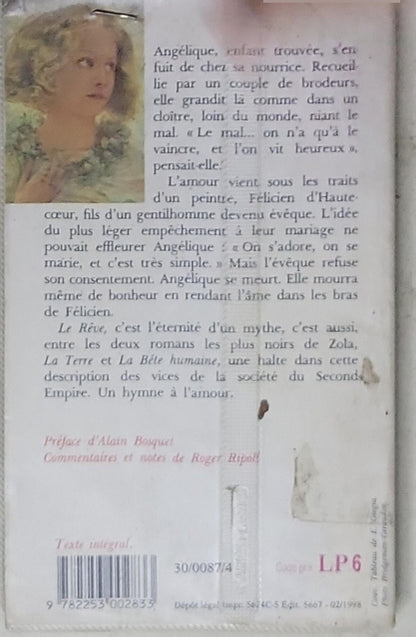 Angélique, enfant trouvée, s'en-
fuit de chez sa nourrice. Recueil-
lie par un couple de brodeurs,
elle grandit là comme dans un
cloître, loin du monde, niant le
mal. « Le mal... on n'a qu'à le
vaincre, et l'on vit heureux »,
pensait-elle.
L'amour vient sous les traits
d'un peintre, Félicien d'Haute-
cœur, fils d'un gentilhomme devenu évêque. L'idée
du plus léger empêchement à leur mariage ne
pouvait effleurer Angélique : « On s'adore, on se
marie, et c'est très simple. » Mais l'évêque refuse
son consentement. Angélique se meurt. Elle mourra
même de bonheur en rendant l'âme dans les bras
de Félicien.
Le Rêve, c'est l'éternité d'un mythe, c'est aussi,
entre les deux romans les plus noirs de Zola,
La Terre et La Bête humaine, une halte dans cette
description des vices de la société du Second
Empire. Un hymne à l'amour.
Préface d'Alain Bosquet
Commentaires et notes de Roger Ripoll
Texte intégral.
30/0087/4
Code prix LP 6
9 782253 002833
Dépôt légal Impr. 5674C-5 Edit. 5667 - 02/1998
Couv. Tableau de L.
Photo Bridgeman-Giraudon.